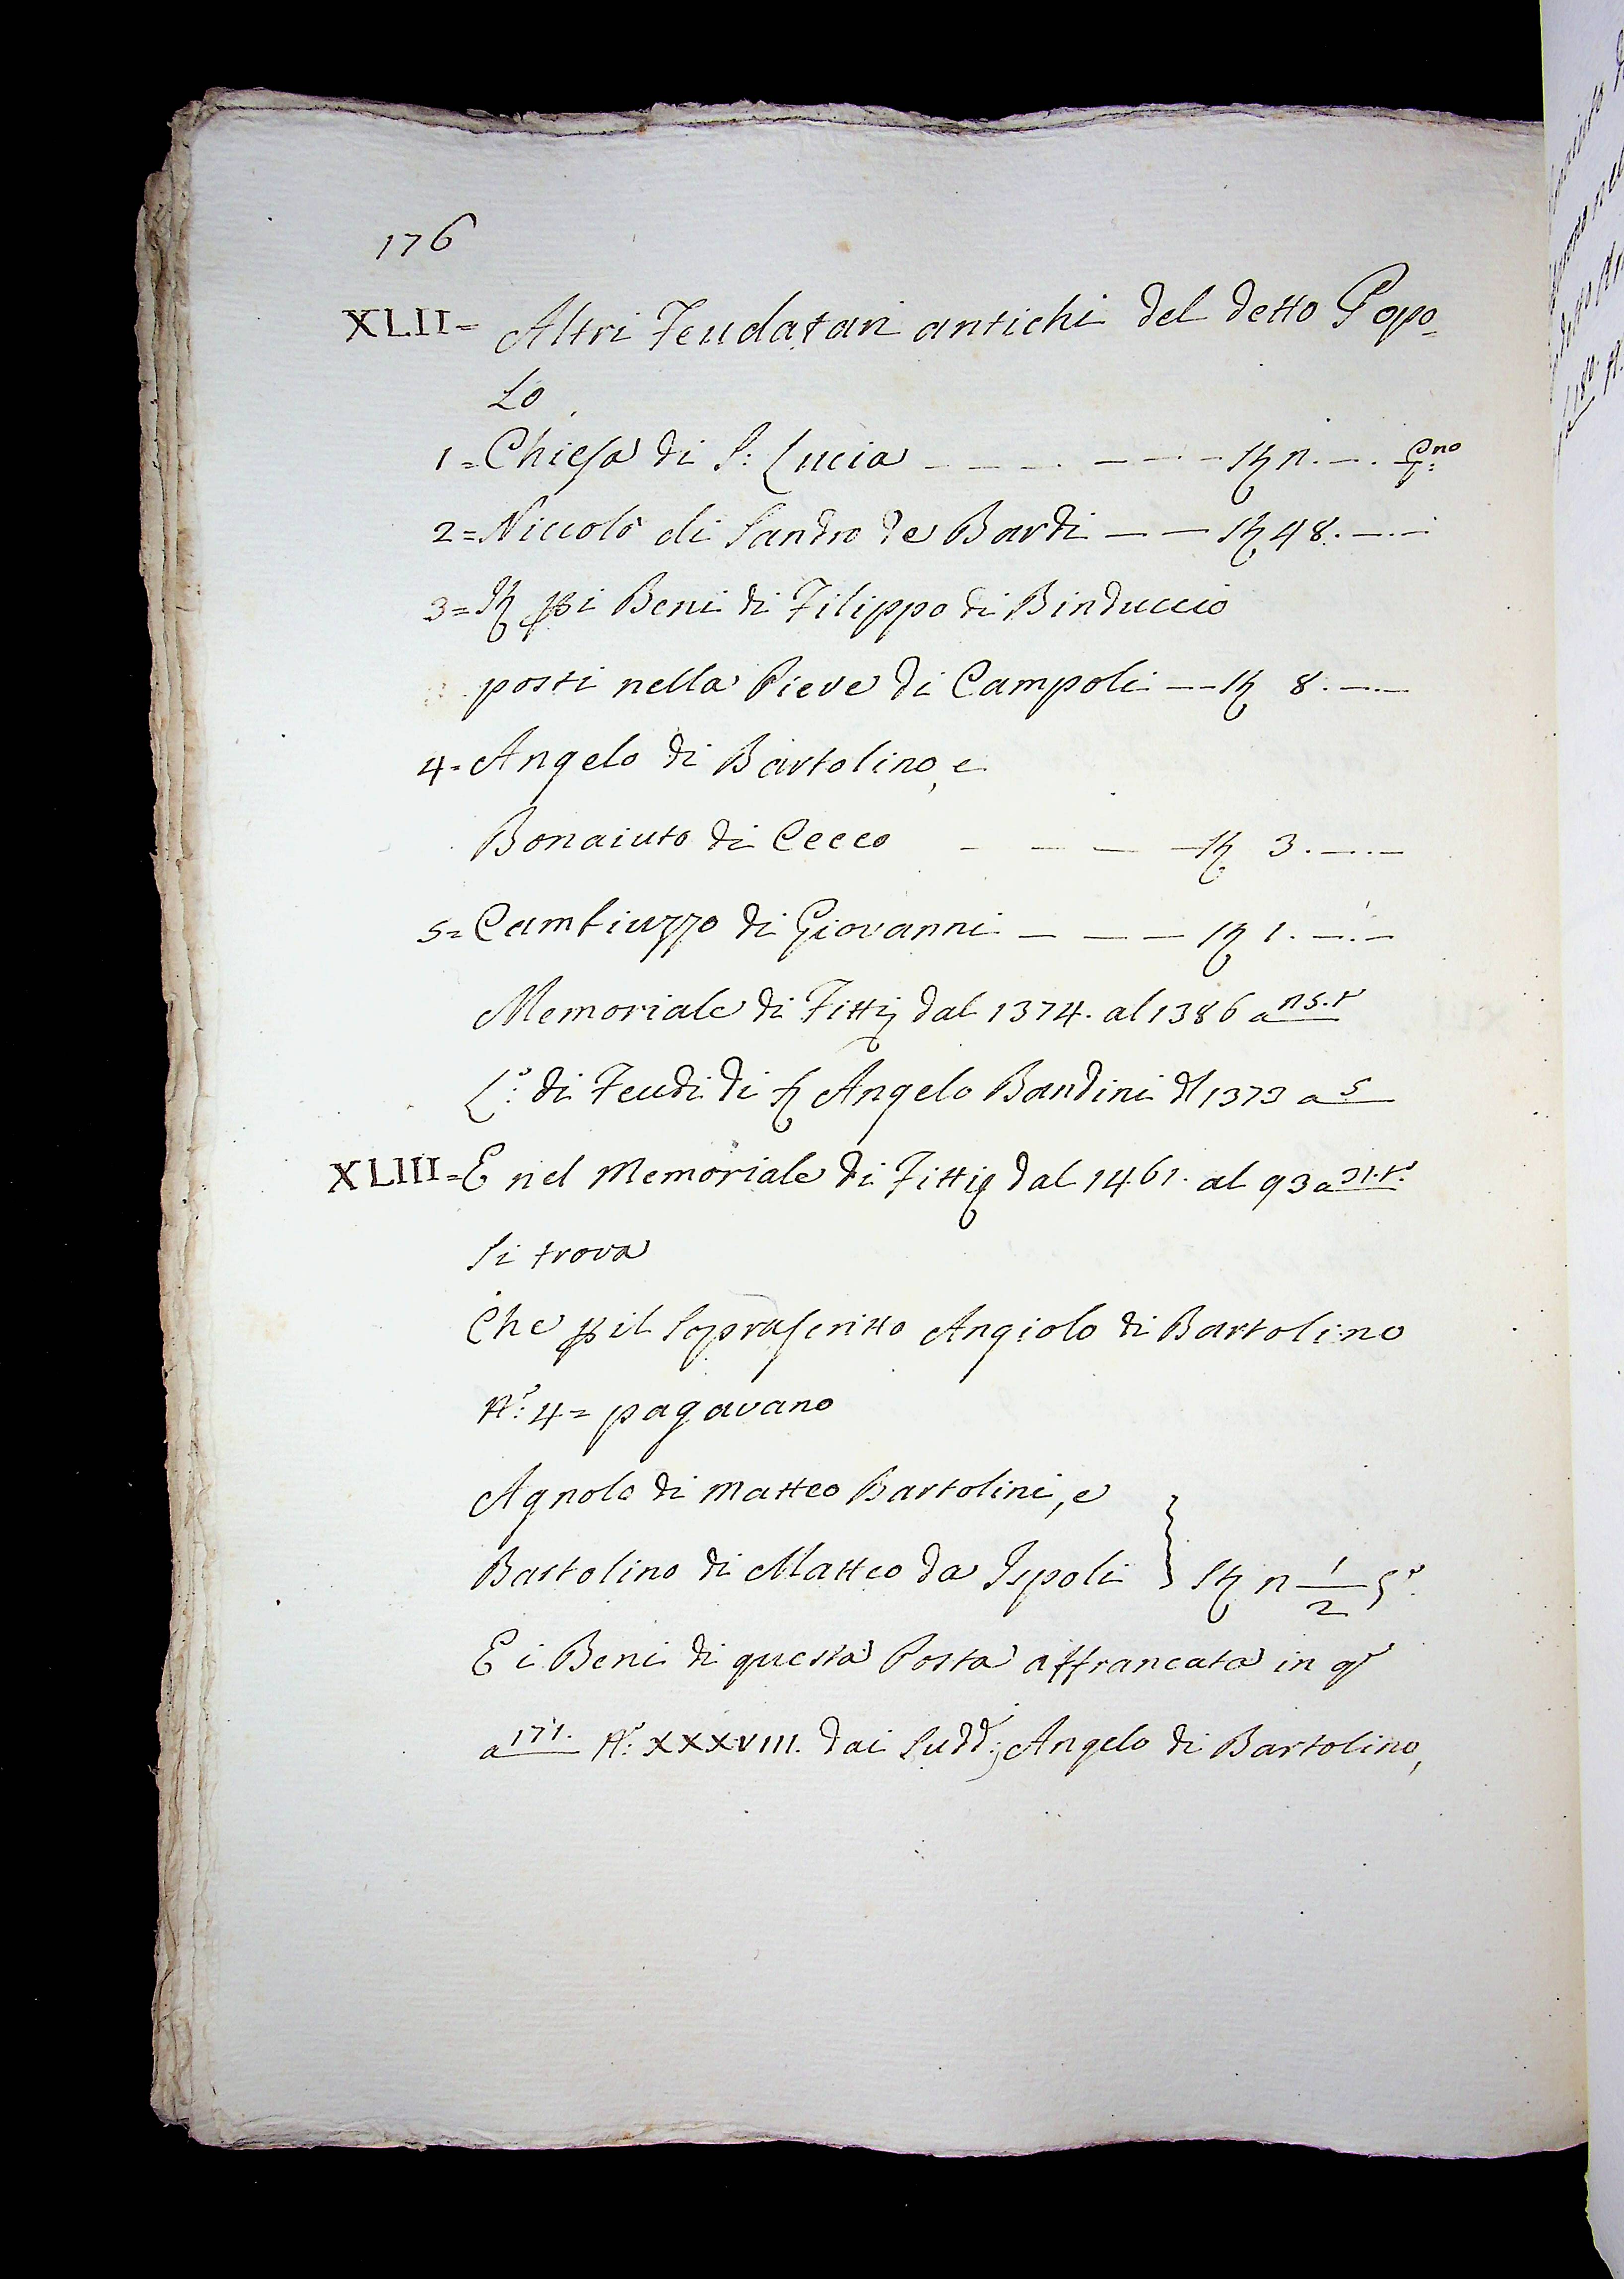 176
XLII= Altri Feudatari antichi del detto Popo=
Lo
1= Chiesa di S: Lucia - - - - - - - St 12. - . Gno
2= Niccolò di Sandro de Bardi - - St 48. - . -
3= St pi Beni di Filippo di Binduccio
posti nella Pieve di Campoli - - St 8. - . -
4= Angelo di Bartolino, e
Bonaiuto di Cecco - - - - St 3. - . -
5= Cambiuzzo di Giovanni - - - St 1. - . -
Memoriale di Fitti dal 1374. al 1386 a 125.t
L:o di Feudi di Angelo Bandini dl 1373 a 5
XLIII= E nel Memoriale di Fitti dal 1461. al 93 a 31.to
Si trova
Che p il Soprascritto Angiolo di Bartolino
N:o 4= pagavano
Agnolo di Matteo Bartolini, e
Bartolino di Matteo da Ispoli } St 12 1/2 Go
E i Beni di questa Posta affrancata in qo
a 171. N:o XXXVIII. dai Sudd:i Angelo di Bartolino,